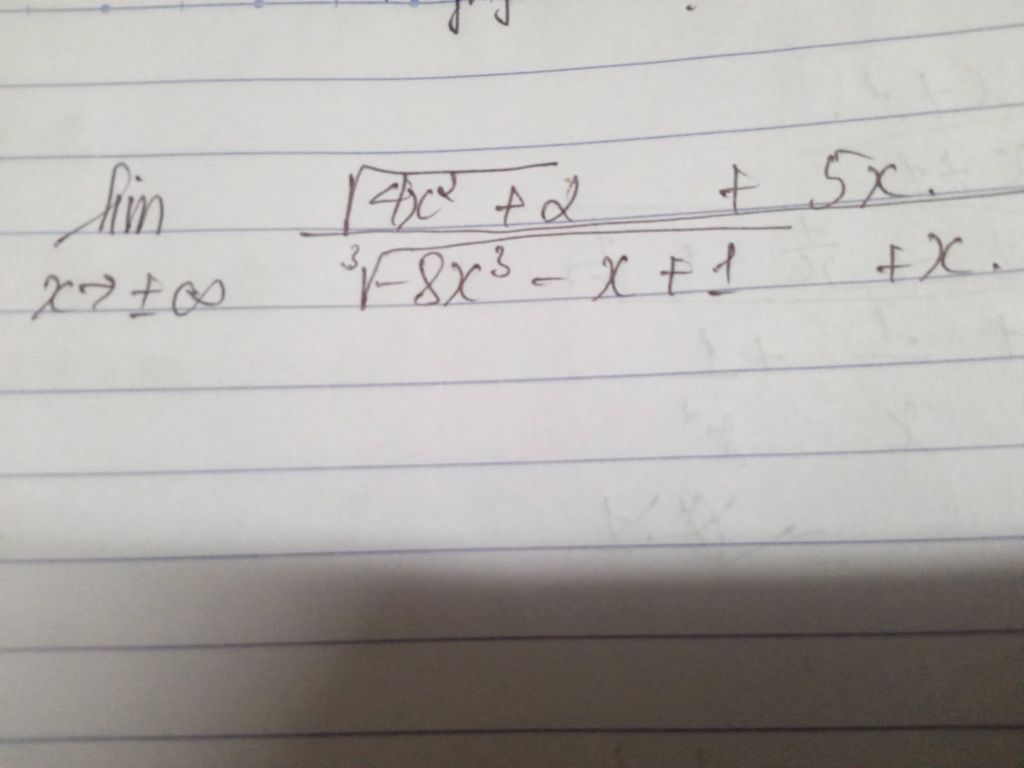 lim x→±∞ (√(4x² + 2) + 5x.) / (∛(-8x³ - x + 1) + x.)